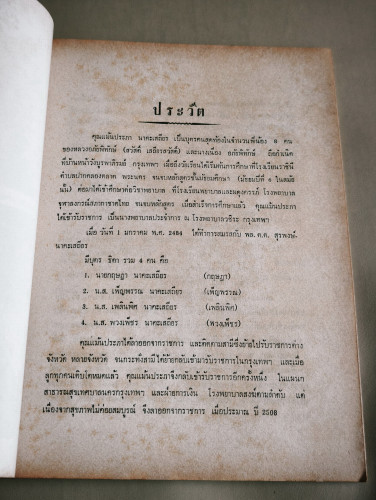 ประวัติ
คุณแม้นประภา นาคะเสถียร เป็นบุตรคนสุดท้องในจำนวนพี่น้อง 8 คน
ของหลวงอภัยพิทักษ์ (สวัสดิ์ เสถียรสวัสดิ์) และนางเนื่อง อภัยพิทักษ์ ถือกำเนิด
ที่บ้านหน้าวังบูรพาภิรมย์ กรุงเทพฯ เมื่อถึงวัยเรียนได้เริ่มต้นการศึกษาที่โรงเรียนราชินี
ตำบลปากคลองตลาด พระนคร จนจบหลักสูตรชั้นมัธยมศึกษา (มัธยมปีที่ ๘ ในสมัย
นั้น) ต่อมาได้เข้าศึกษาต่อวิชาพยาบาล ที่โรงเรียนพยาบาลและผดุงครรภ์ โรงพยาบาล
จุฬาลงกรณ์สภากาชาดไทย จนจบหลักสูตร เมื่อสำเร็จการศึกษาแล้ว คุณแม้นประภา
ได้เข้ารับราชการ เป็นนางพยาบาลประจำการ ณ โรงพยาบาลวชิระ กรุงเทพฯ
เมื่อ วันที่ 1 มกราคม พ.ศ. 2484 ได้ทำการสมรสกับ พล.ต.ต. สุรพงษ์
นาคะเสถียร
มีบุตร ธิดา รวม 4 คน คือ
1. นายกฤษฎา นาคะเสถียร (กฤษฎา)
2. น.ส. เพ็ญพรรณ นาคะเสถียร (เพ็ญพรรณ)
3. น.ส. เพลินพิศ นาคะเสถียร (เพลินพิศ)
4. น.ส. พวงเพ็ชร นาคะเสถียร (พวงเพ็ชร)
คุณแม้นประภาได้ลาออกจากราชการ และติดตามสามีซึ่งย้ายไปรับราชการต่าง
จังหวัด หลายจังหวัด จนกระทั่งสามีได้ย้ายกลับเข้ามารับราชการในกรุงเทพฯ และเมื่อ
ลูกทุกคนเติบโตหมดแล้ว คุณแม้นประภาจึงกลับเข้ารับราชการอีกครั้งหนึ่ง ในแผนก
สาธารณสุขเทศบาลนครกรุงเทพฯ และฝ่ายการเงิน โรงพยาบาลสงฆ์ตามลำดับ แต่
เนื่องจากสุขภาพไม่ค่อยสมบูรณ์ จึงลาออกจากราชการ เมื่อประมาณ ปี 2508